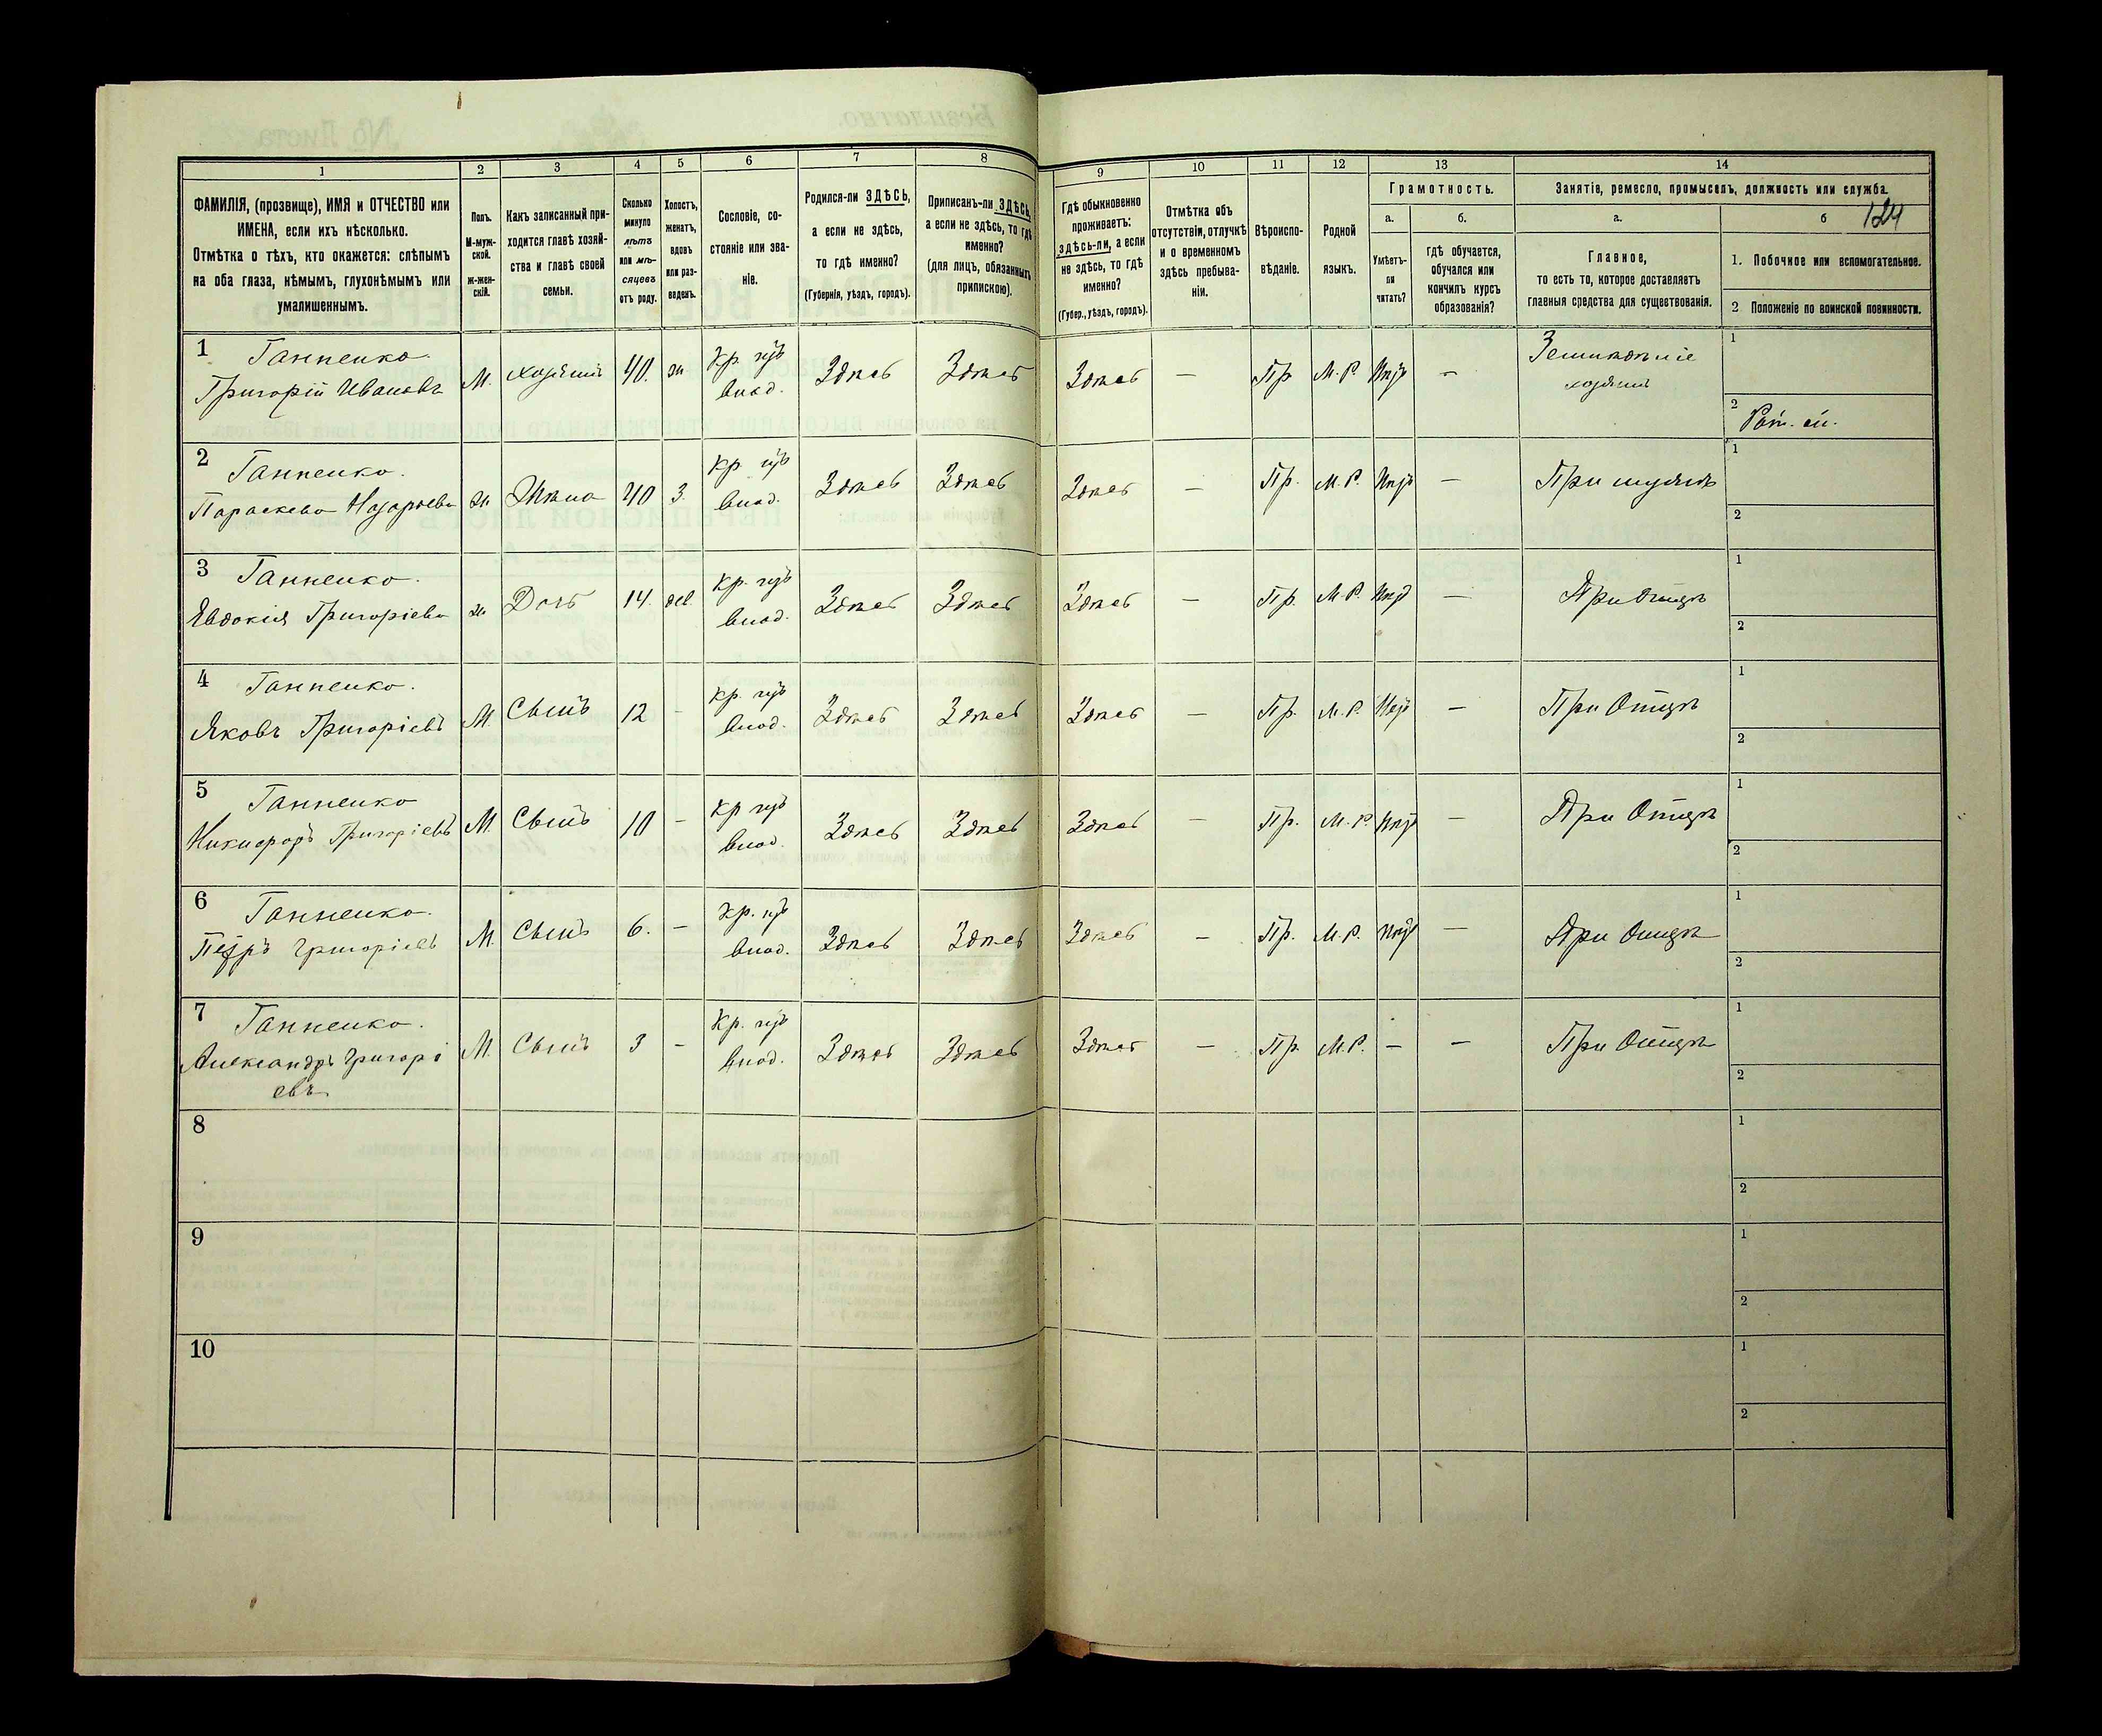 1
2
3
4
5
6
7
8
ФАМИЛІЯ, (прозвище), ИМЯ и ОТЧЕСТВО или
ИМЕНА, если ихъ нѣсколько.
Отмѣтка о тѣхъ, кто окажется: слѣпымъ
на оба глаза, нѣмымъ, глухонѣмымъ или
умалишеннымъ.
Полъ.
М-муж-
ской.
ж-жен-
скій.
Какъ записанный при-
ходится главѣ хозяй-
ства и главѣ своей
семьи.
Сколько
минуло
лѣтъ
или мѣ-
сяцевъ
отъ роду.
Холостъ,
женатъ,
вдовъ
или раз-
веденъ.
Сословіе, со-
стояніе или зва-
ніе.
Родился-ли ЗДѢСЬ,
а если не здѣсь,
то гдѣ именно?
(Губернія, уѣздъ, городъ).
Приписанъ-ли ЗДѢСЬ,
а если не здѣсь, то гдѣ
именно?
(для лицъ, обязанныхъ
припискою).
9
10
11
12
13
14
Гдѣ обыкновенно
проживаетъ:
здѣсь-ли, а если
не здѣсь, то гдѣ
именно?
(Губер., уѣздъ, городъ).
Отмѣтка объ
отсутствіи, отлучкѣ
и о временномъ
здѣсь пребыва-
ніи.
Вѣроиспо-
вѣданіе.
Родной
языкъ.
Грамотность.
а.
б.
Умѣетъ-
ли
читать?
гдѣ обучается,
обучался или
кончилъ курсъ
образованія?
Занятіе, ремесло, промыселъ, должность или служба.
а.
б
124
Главное,
то есть то, которое доставляетъ
главныя средства для существованія.
1. Побочное или вспомогательное.
2 Положеніе по воинской повинности.
1
Ганненко
Григорій Ивановъ
М. хозяинъ 40. ж Кр.
влад.
Здѣсь Здѣсь Здѣсь — Пр М. Р. —
Земледѣліе
хозяинъ
1
2
2
Ганненко.
Параскева Назарьева
ж Жена 40 з. Кр.
влад.
Здѣсь Здѣсь Здѣсь — Пр. М. Р. — При мужѣ
1
2
3
Ганненко.
Явдокія Григоріева
ж Дочь 14. дев. Кр.
влад.
Здѣсь Здѣсь Здѣсь — Пр. М. Р. — При Отцѣ
1
2
4
Ганненко.
Яковъ Григоріевъ
М Сынъ 12 - Кр.
влад.
Здѣсь Здѣсь Здѣсь — Пр. М. Р. — При Отцѣ
1
2
5
Ганненко
Никифоръ Григоріевъ
М. Сынъ 10 - Кр
влад.
Здѣсь Здѣсь Здѣсь — Пр. М. Р. — При Отцѣ
1
2
6
Ганненко.
Петръ Григоріевъ
М. Сынъ 6. — Кр.
влад.
Здѣсь Здѣсь Здѣсь — Пр. М. Р. — При Отцѣ
1
2
7
Ганненко.
Александръ Григорі
евъ.
М. Сынъ 3 - Кр.
влад.
Здѣсь Здѣсь Здѣсь — Пр М. Р. — — При Отцѣ
1
2
8
1
2
9
1
2
10
1
2